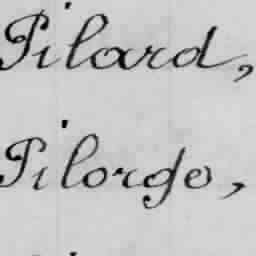 Pilard,
Pilorge,